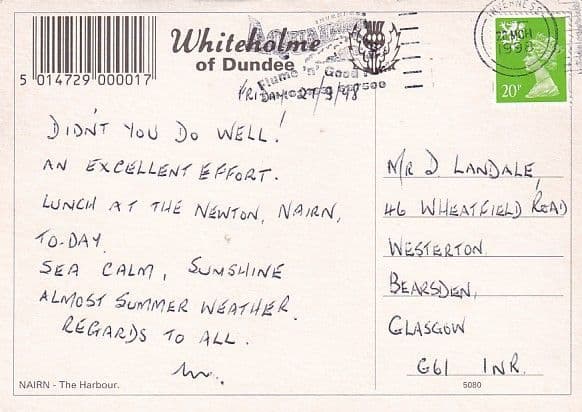 5 014729 000017
Whiteholme
of Dundee
INVERNESS
1998
20P
FRIDAY 27/3/98
DIDN'T YOU DO WELL!
AN EXCELLENT EFFORT.
LUNCH AT THE NEWTON, NAIRN,
TO-DAY.
SEA CALM, SUNSHINE
ALMOST SUMMER WEATHER.
REGARDS TO ALL.
MR D. LANDALE,
46 WHEATFIELD ROAD
WESTERTON
BEARSDEN,
GLASGOW
G61 1NR.
NAIRN - The Harbour.
5080